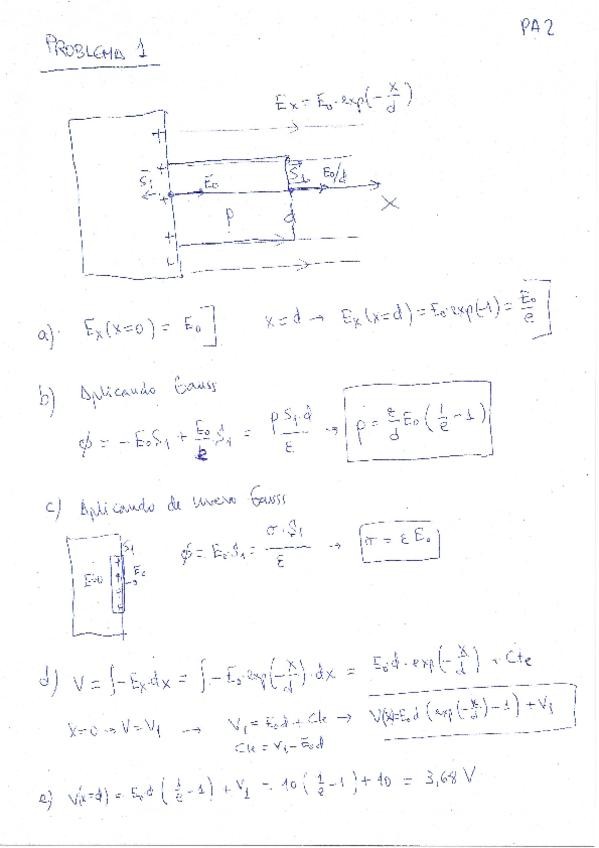 PA2
PROBLEMA 1
Ex = E0·exp(-x/d)
+
+
S1
+
E0
S1
E0/d
X
ρ
d
+
a) Ex(x=0) = E0] x=d → Ex(x=d) = E0·exp(-1) = E0/e]
b) Aplicando Gauss
ϕ = -E0S1 + E0/e S1 = ρS1·d/ε → ρ = ε/d E0(1/e - 1)
c) Aplicando de nuevo Gauss
S1
E=0
E0
ϕ = E0·S1 = σ·S1/ε → σ = εE0
d) V = ∫-Ex·dx = ∫-E0·exp(-x/d)·dx = E0·d·exp(-x/d) + Cte
x=0 → V=V1 → V1 = E0d + Cte → V(x)=E0d(exp(-x/d)-1) + V1
Cte = V1 - E0d
e) V(x=d) = E0d(1/e - 1) + V1 = 10(1/e - 1) + 10 = 3,68 V